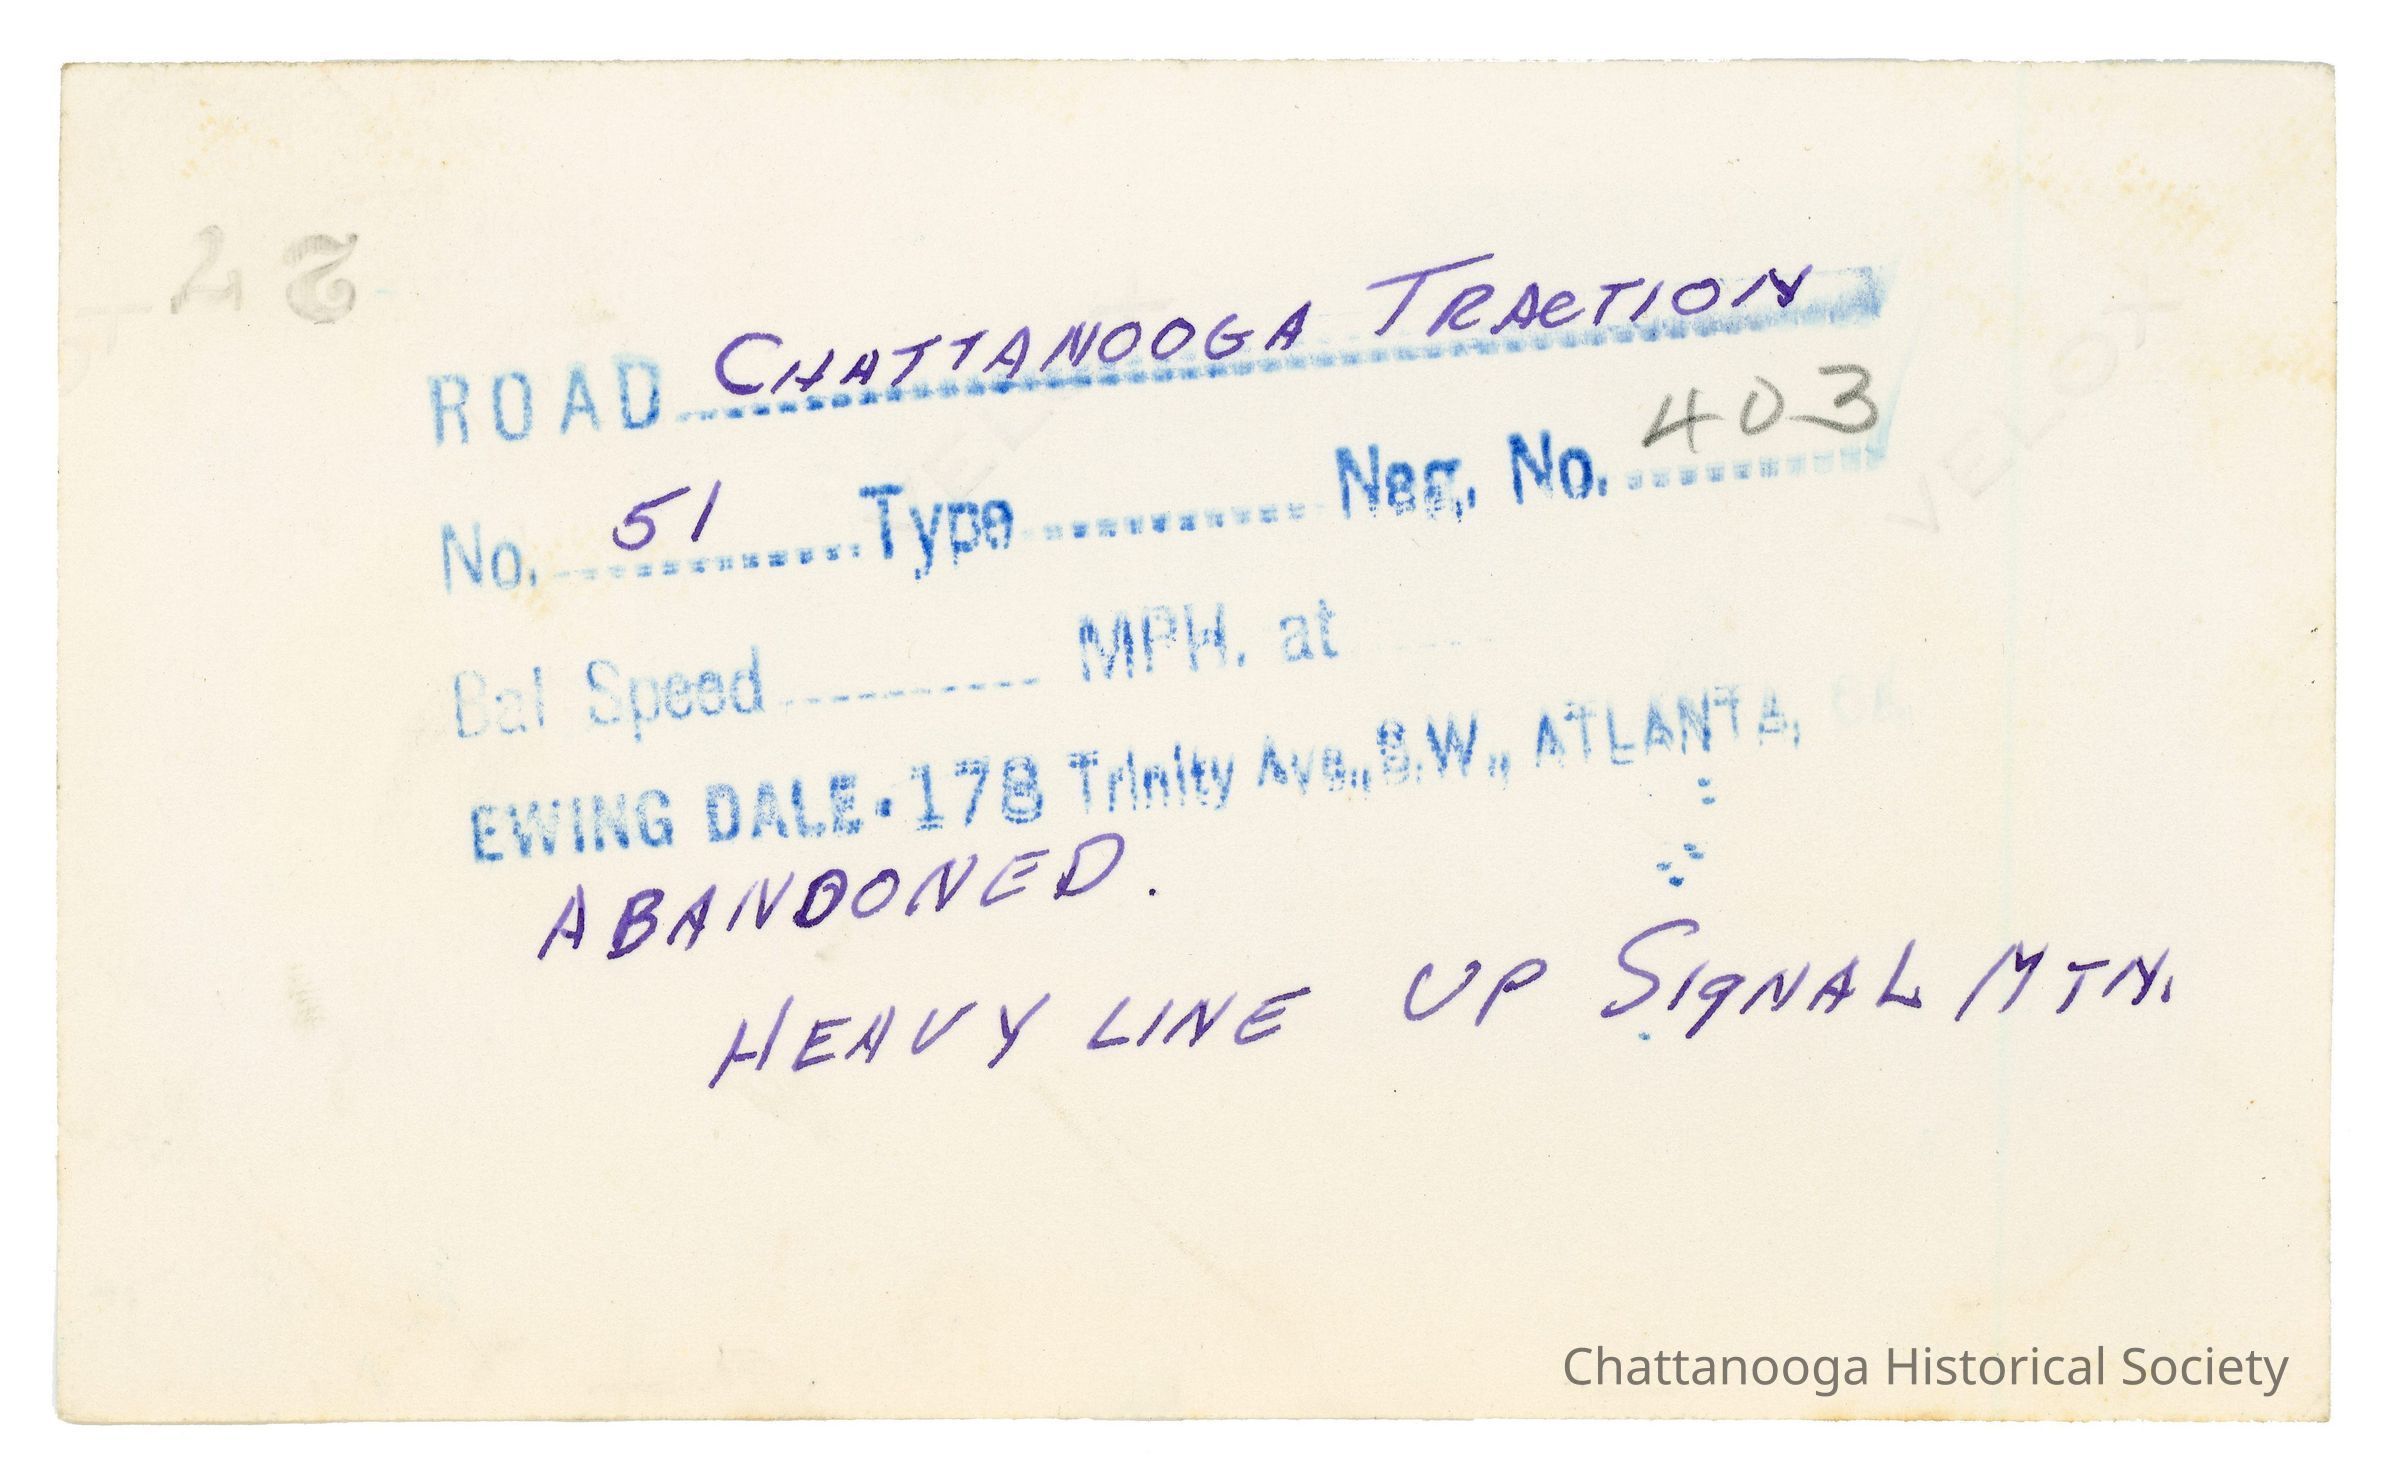 ROAD CHATTANOOGA TRACTION
No. 51 Type Neg. No. 403
Bal Speed MPH. at
EWING DALE · 178 Trinity Ave., S.W., ATLANTA, GA.
ABANDONED.
HEAVY LINE UP SIGNAL MTN.
Chattanooga Historical Society